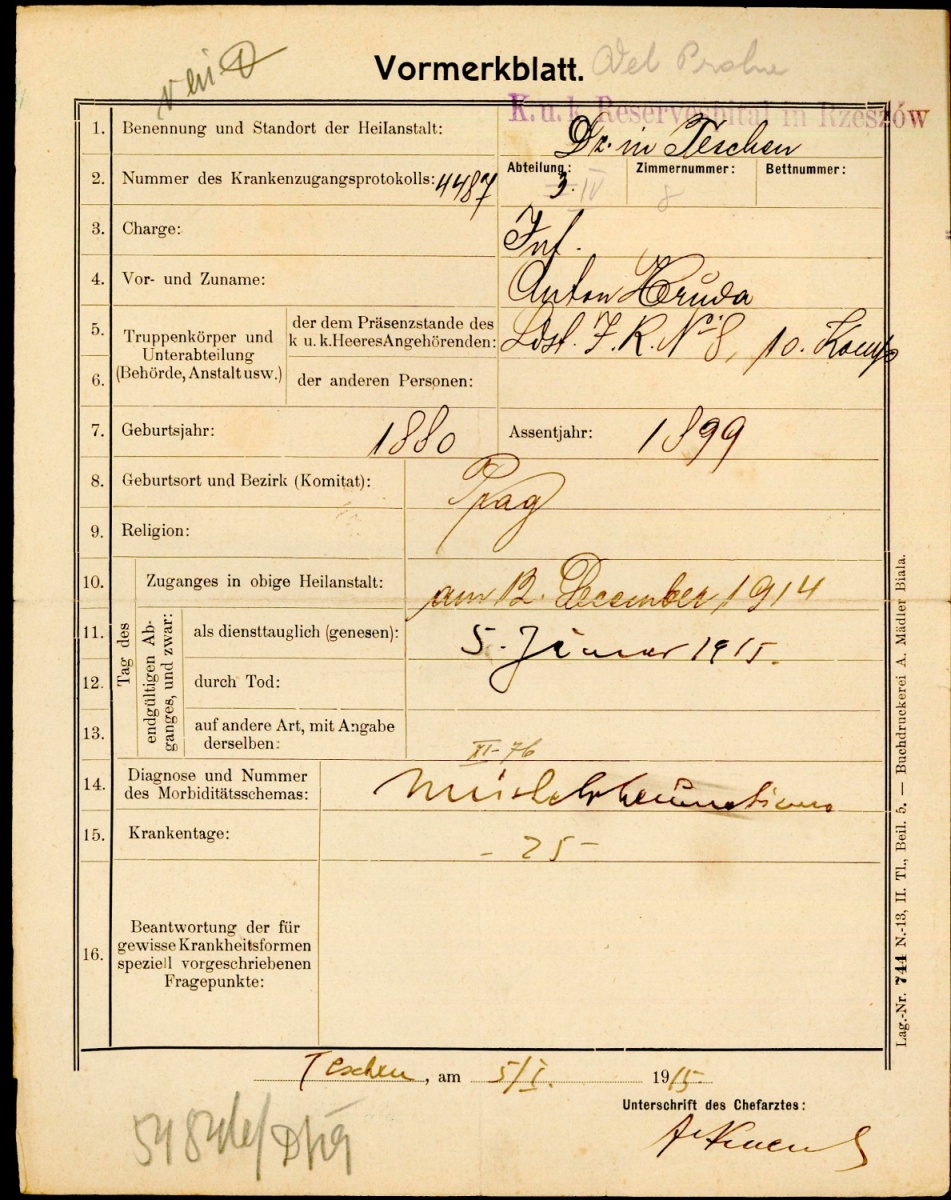 Vormerkblatt.
K. u. k. Reservespital in Rzeszów
1. Benennung und Standort der Heilanstalt: in Teschen
2. Nummer des Krankenzugangsprotokolls: 4487 Abteilung: 3. IV Zimmernummer: 8 Bettnummer:
3. Charge: Inf.
4. Vor- und Zuname: Anton Hruda
5. Truppenkörper und Unterabteilung (Behörde, Anstalt usw.) der dem Präsenzstande des k u. k. Heeres Angehörenden: Ldst. I. R. No 8, 10. Komp
6. der anderen Personen:
7. Geburtsjahr: 1880 Assentjahr: 1899
8. Geburtsort und Bezirk (Komitat): Prag
9. Religion:
Tag des
10. Zuganges in obige Heilanstalt: am 12. December 1914
endgültigen Abganges, und zwar:
11. als diensttauglich (genesen): 5. Jänner 1915.
12. durch Tod:
13. auf andere Art, mit Angabe derselben:
XI-76
14. Diagnose und Nummer des Morbiditätsschemas: Muskelrheumatismus
15. Krankentage: - 25 -
16. Beantwortung der für gewisse Krankheitsformen speziell vorgeschriebenen Fragepunkte:
Teschen, am 5/I. 1915.
Unterschrift des Chefarztes:
Lag.-Nr. 744 N.-13, II. Tl., Beil. 5. — Buchdruckerei A. Mädler Biala.